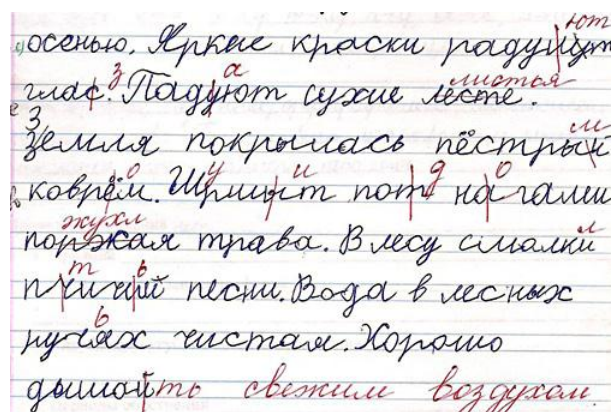 осенью. Яркие краски радуищт ют
глас з. Падуют а сухие лесте листья.
Земля З покрылась пёстрын м
коврём о. Шрмишт у и пот д на гами о
поржая жухл трава. В лесу смалки л
пчичий т ь песни. Вода в лесных
ручях ь чистая. Хорошо
дышойть свежим воздухом